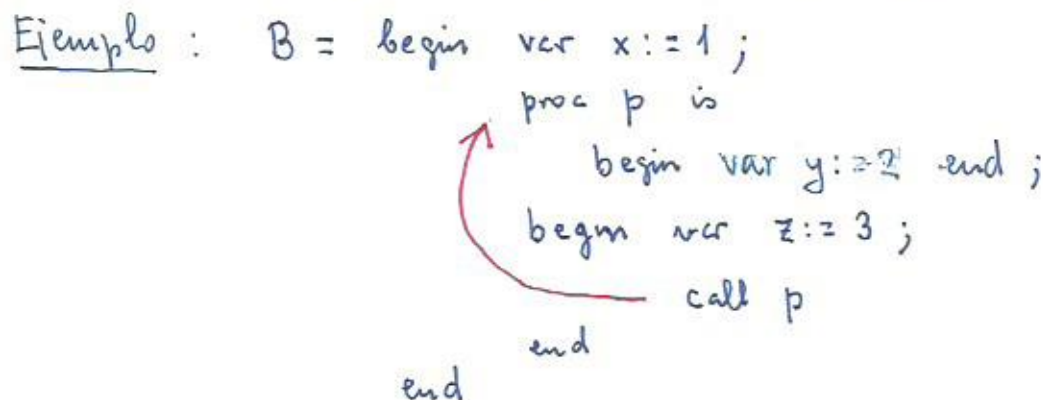 Ejemplo : B = begin var x:=1 ;
proc p is
begin var y:=2 end ;
begin var z:=3 ;
call p
end
end